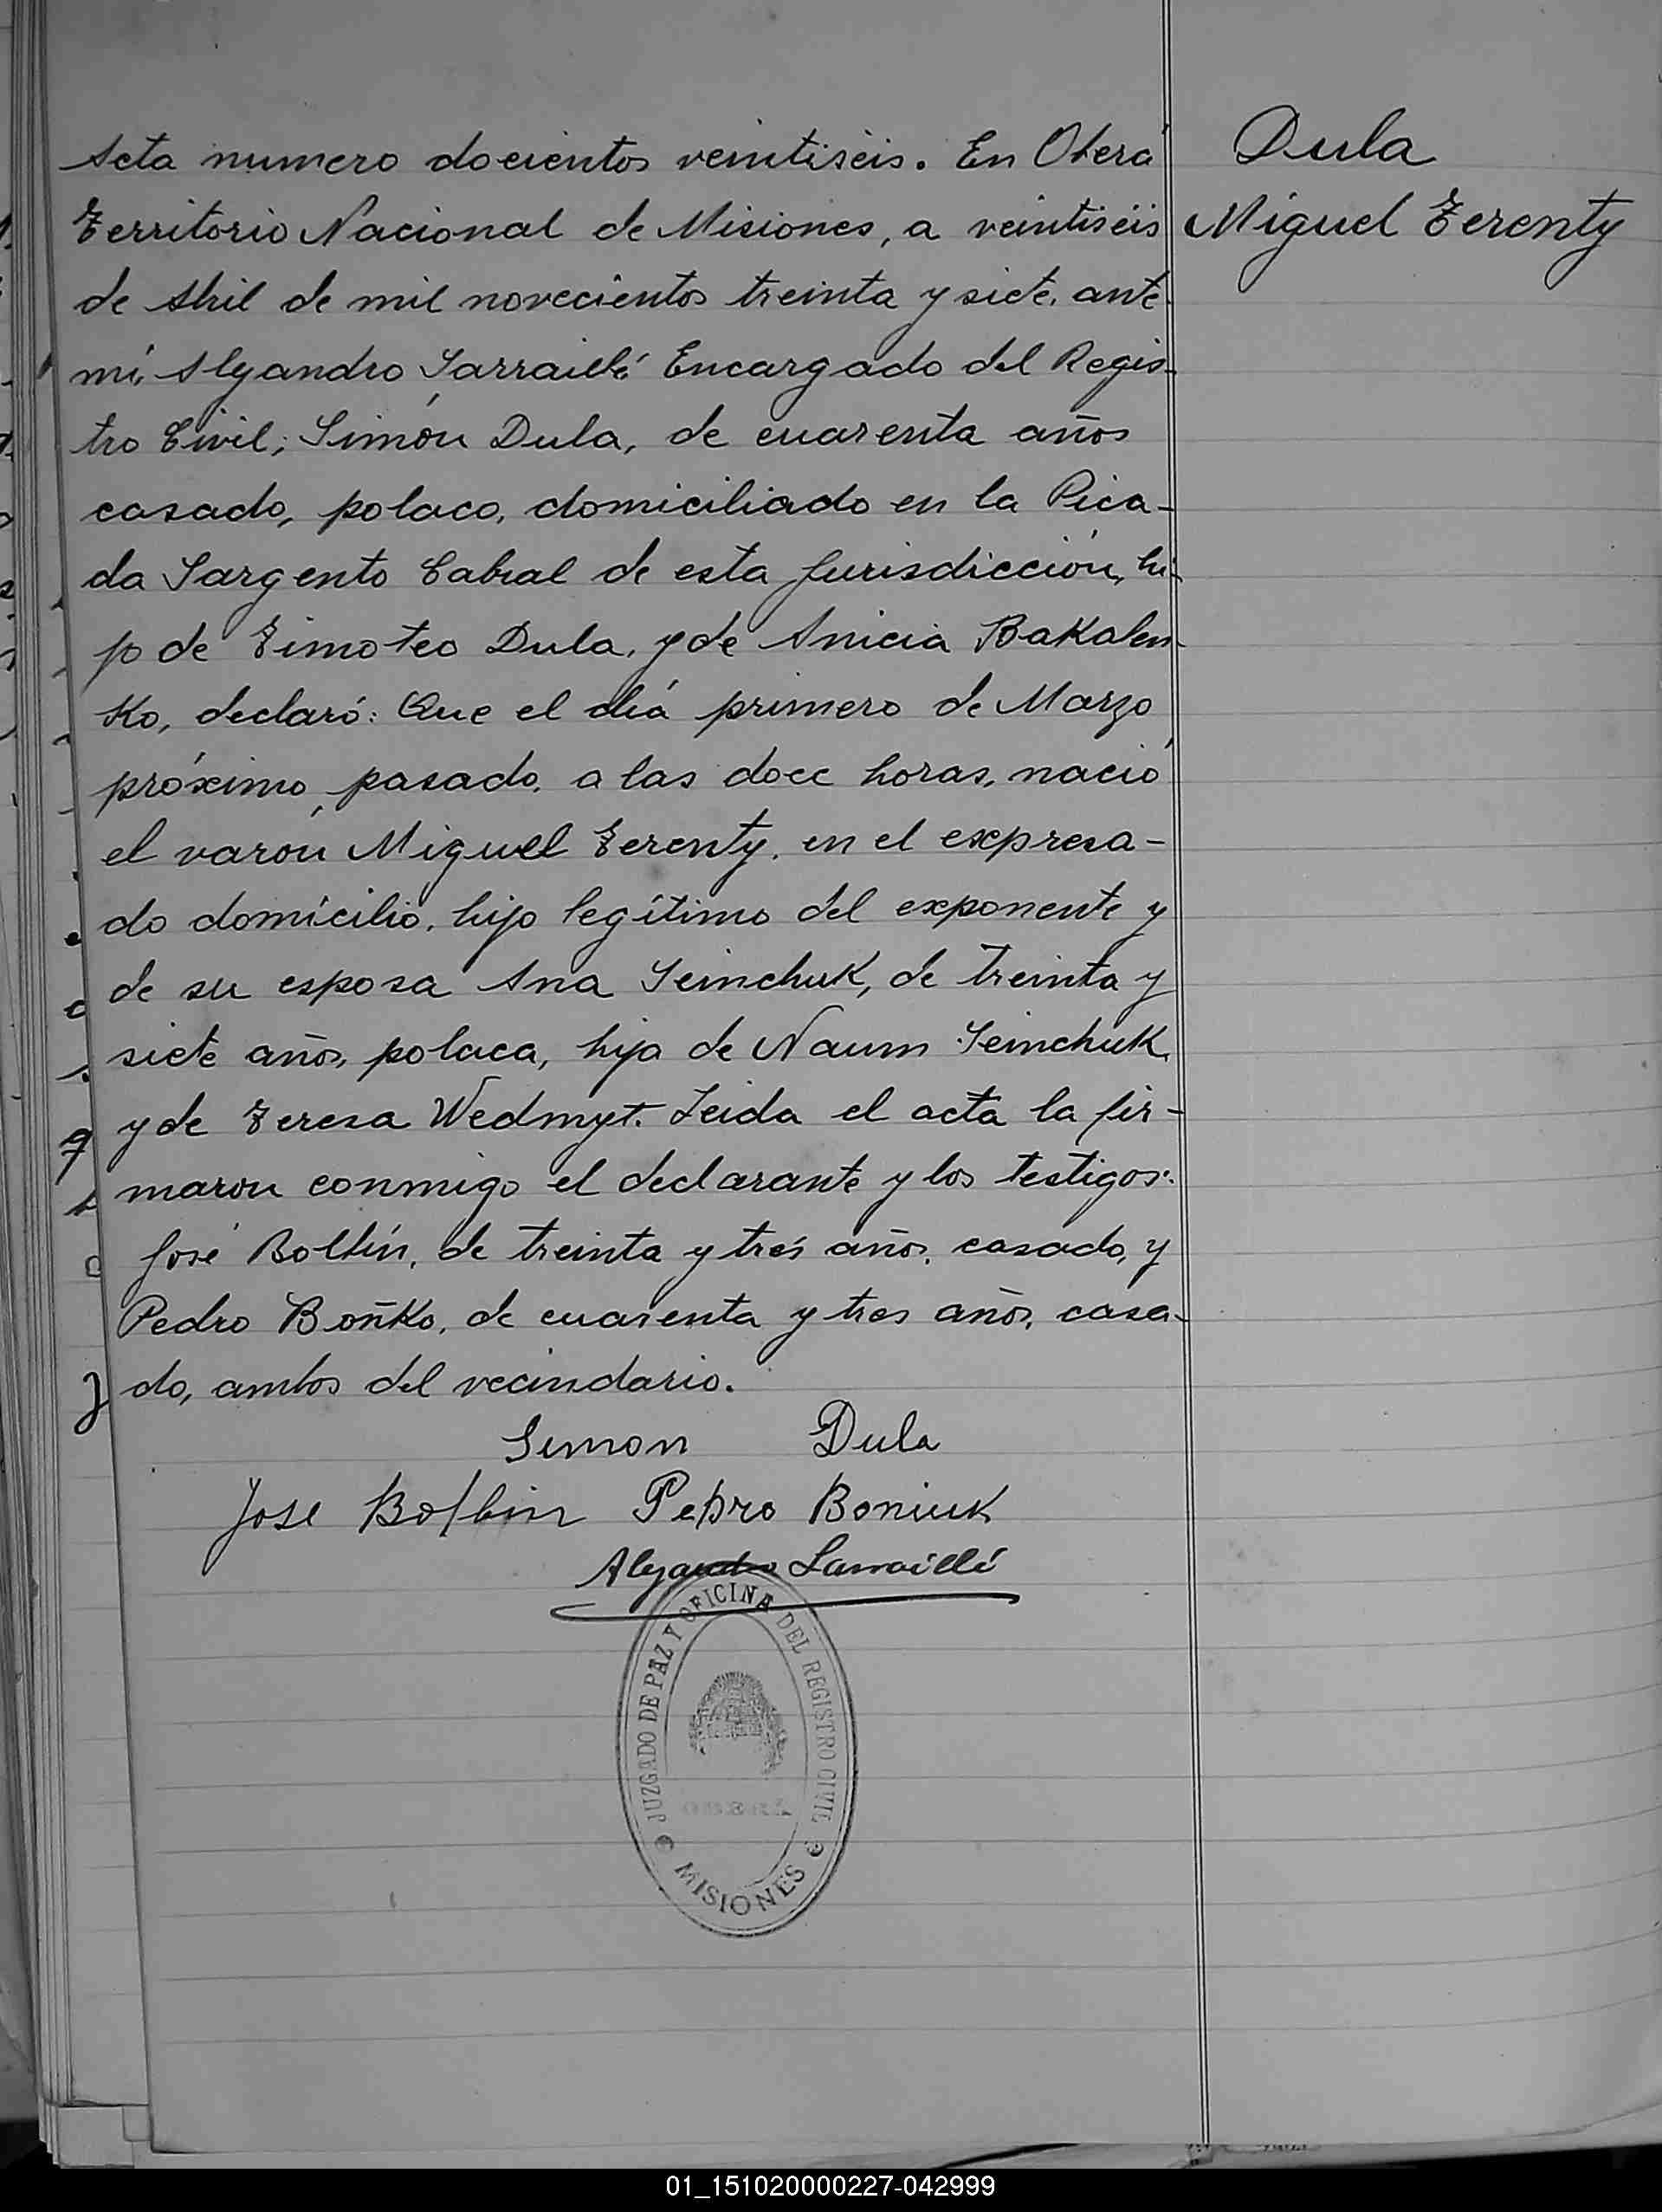 Acta numero docientos veintiseis. En Oberá
Territorio Nacional de Misiones, a veintiséis
de Abril de mil novecientos treinta y siete, ante
mi, Alejandro Sarraillé Encargado del Regis-
tro Civil; Simón Dula, de cuarenta años
casado, polaco, domiciliado en la Pica-
da Sargento Cabral de esta Jurisdicción, hi-
jo de Timoteo Dula, y de Anicia Bakalen-
ko, declaró: Que el día primero de Marzo
próximo pasado, a las doce horas, nació
el varón Miguel Terenty, en el expresa-
do domicilio, hijo legítimo del exponente y
de su esposa Ana Seinchuk, de treinta y
siete años, polaca, hija de Naum Seinchuk
y de Teresa Wedmyt. Leida el acta la fir-
maron conmigo el declarante y los testigos:
José Bolbín, de treinta y tres años, casado, y
Pedro Boñko, de cuarenta y tres años, casa-
do, ambos del vecindario.
Simon Dula
Jose Bolbin Pedro Boniuk
Alejandro Sarraillé
JUZGADO DE PAZ Y OFICINA DEL REGISTRO CIVIL
OBERÁ
MISIONES
Dula
Miguel Terenty
01_151020000227-042999